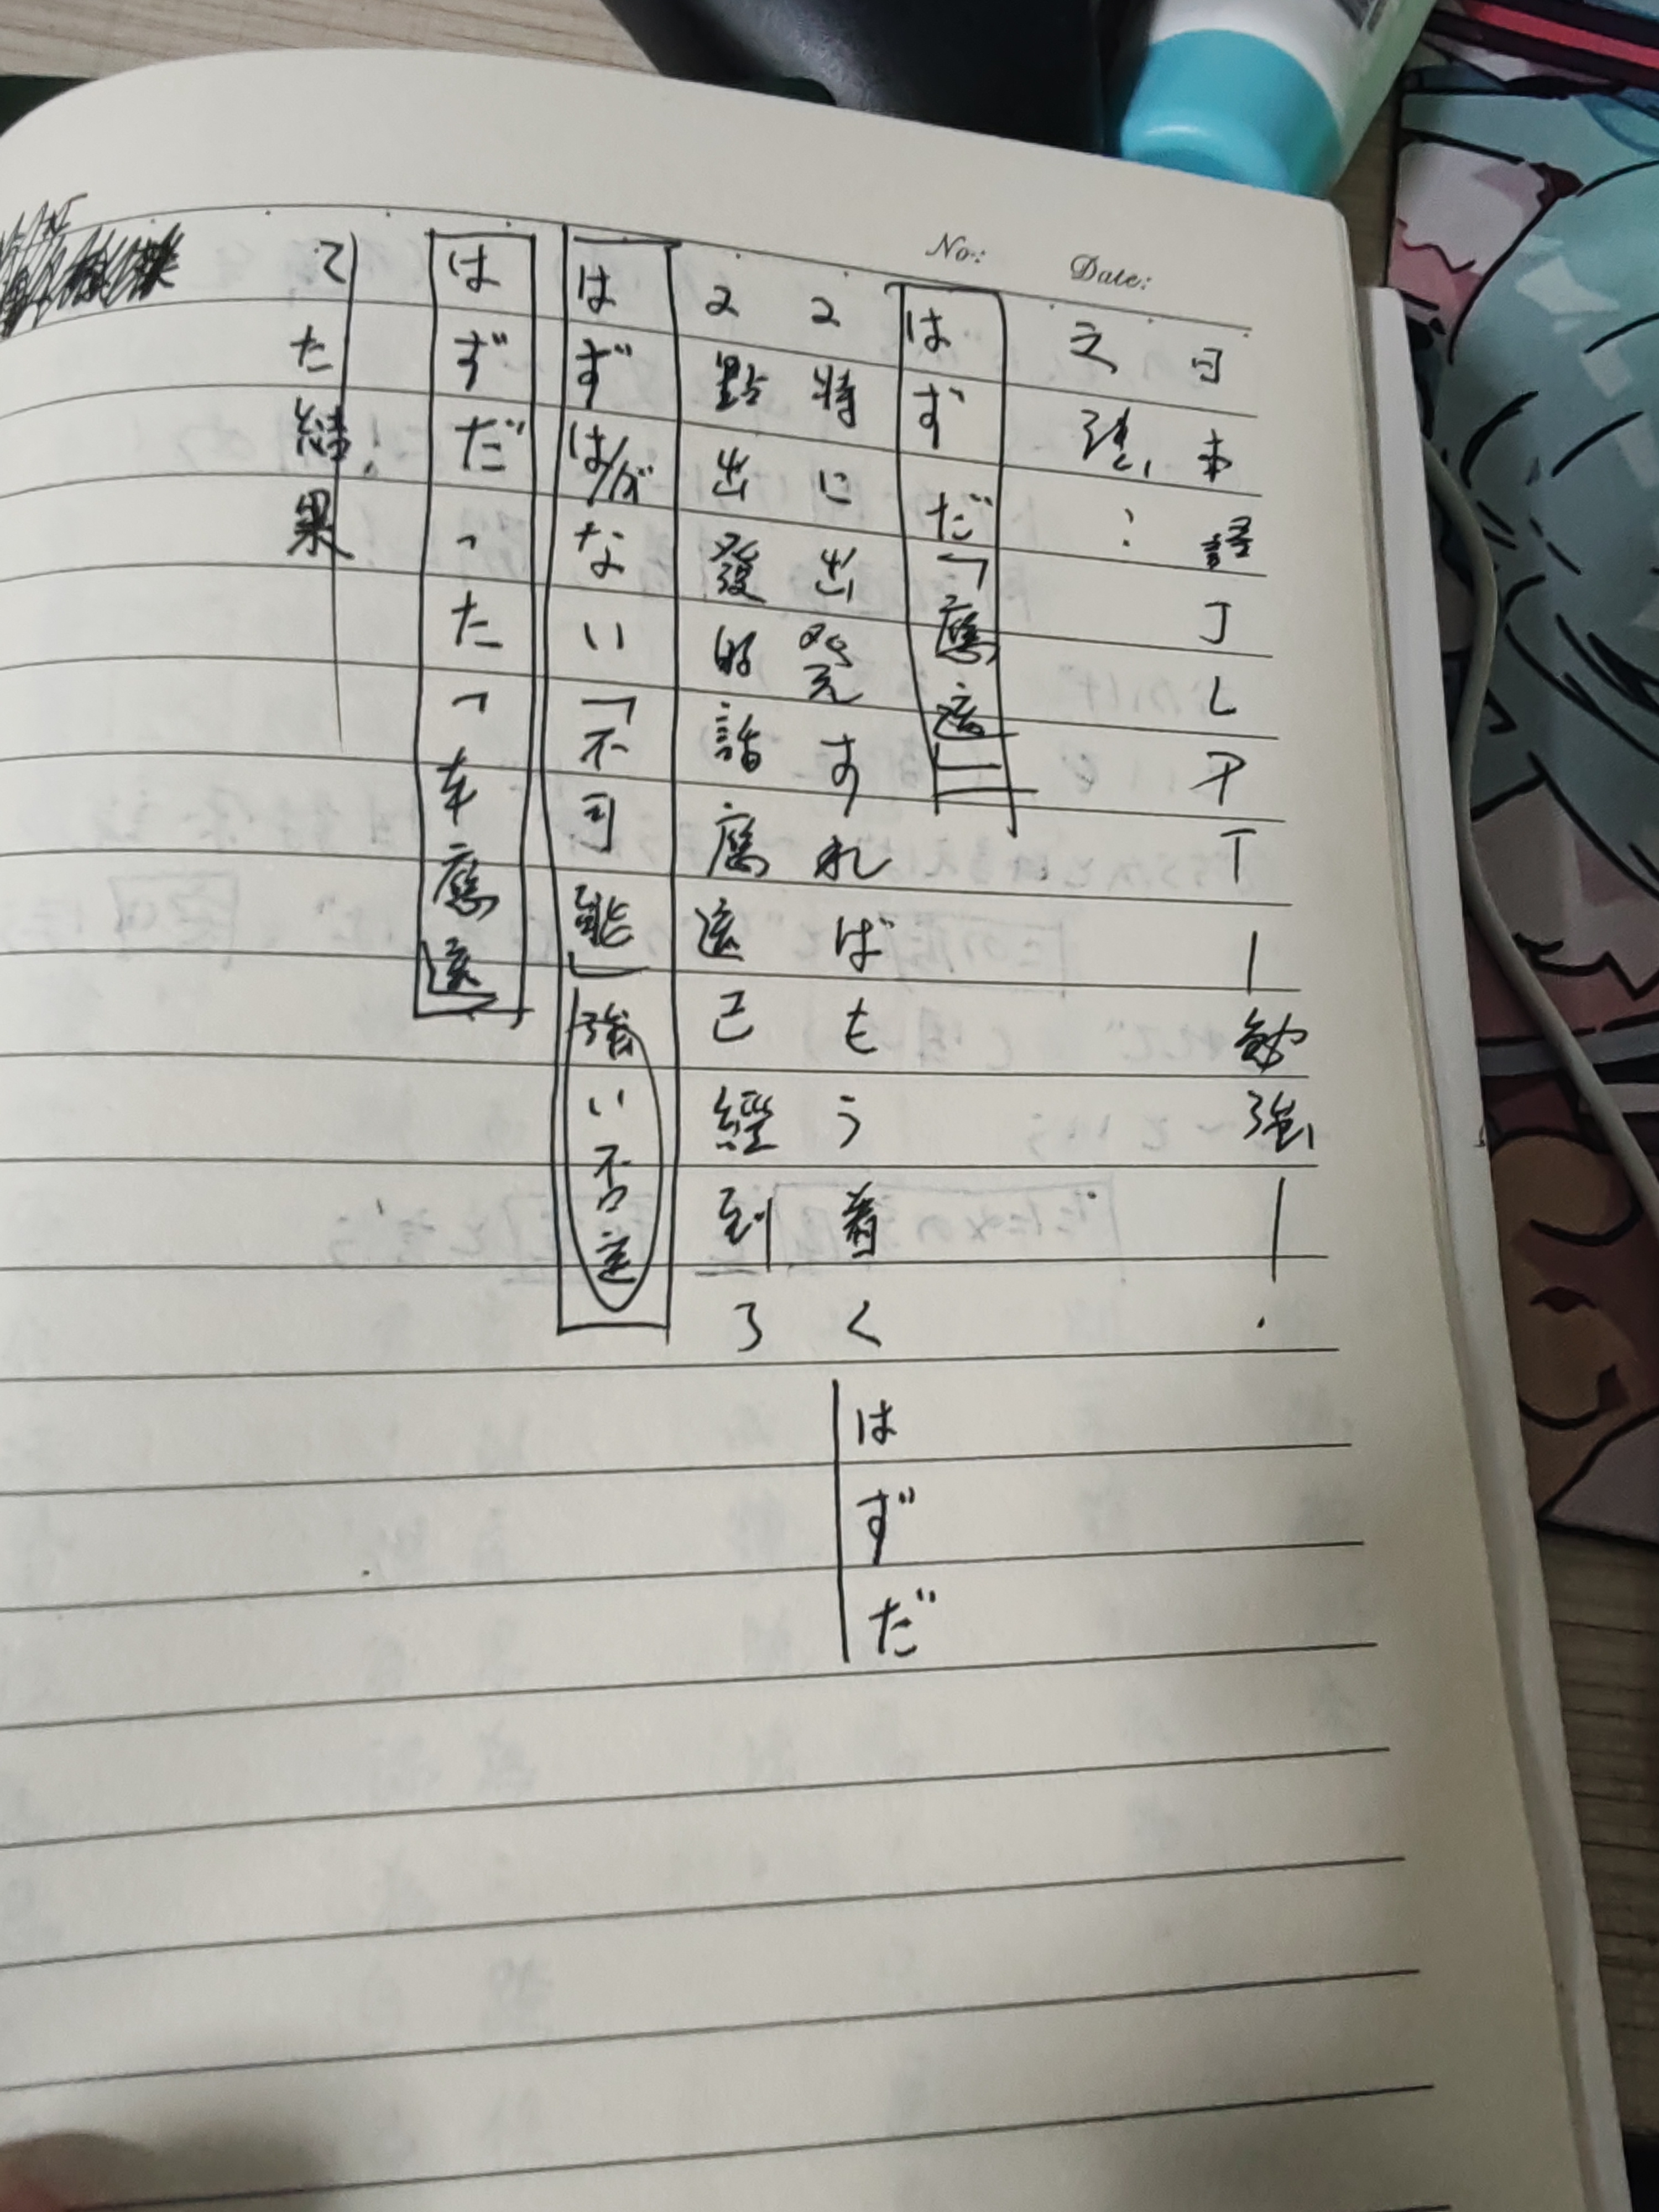 No:
Date:
日本語JLPT—勉強—.
之強:
はずだ「應該」
2時に出発すればもう着くはずだ
2點出發的話應該已經到了
はずは/がない「不可能」強い否定
はずだった「本應該」
た結果